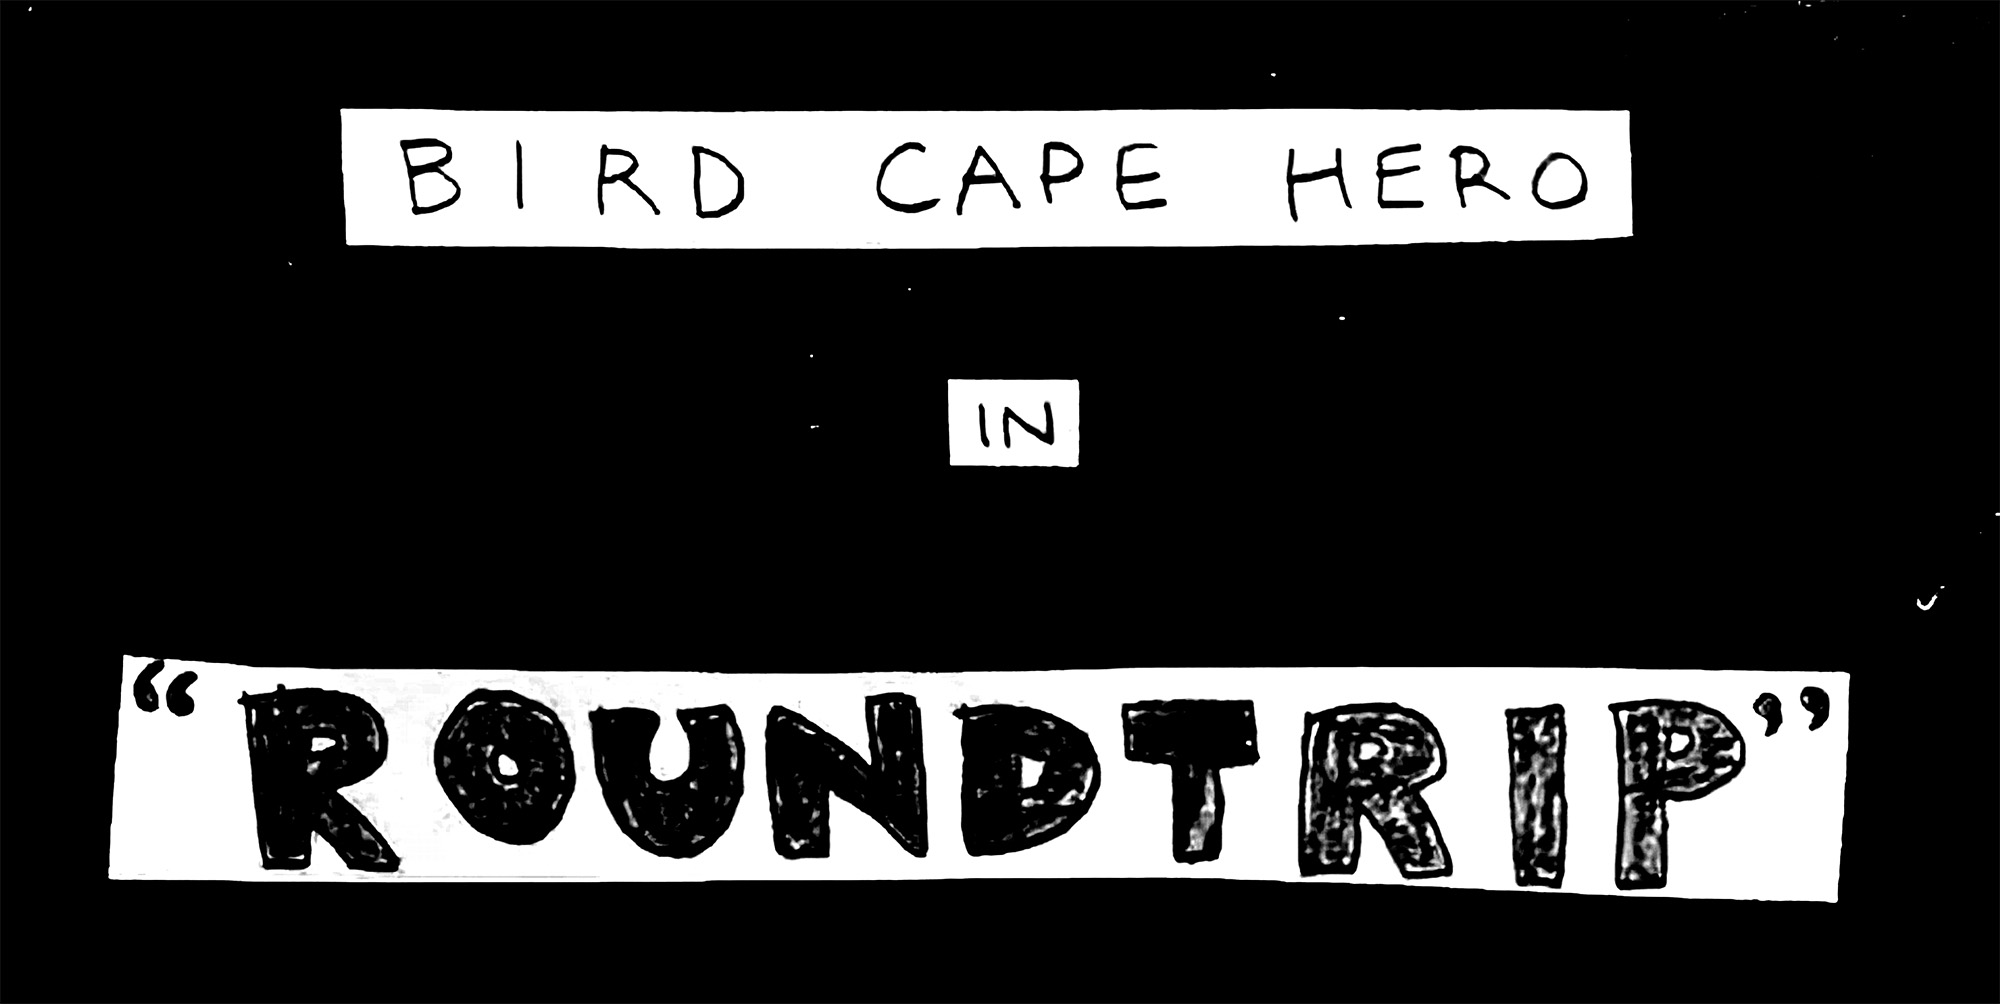 BIRD CAPE HERO
IN
“ROUNDTRIP”